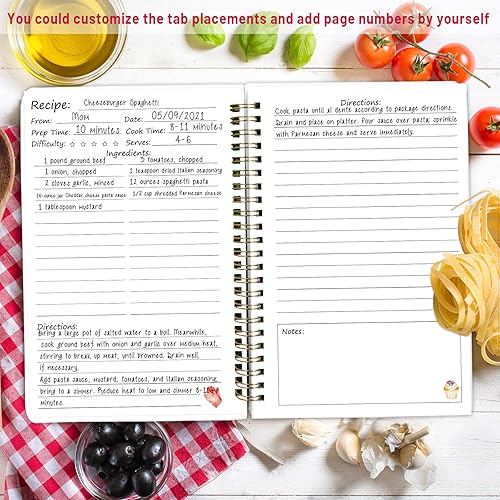 You could customize the tab placements and add page numbers by yourself
Recipe: Cheeseburger Spaghetti
From: Mom Date: 05/09/2021
Prep Time: 10 minutes Cook Time: 8-11 minutes
Difficulty: ☆ ☆ ☆ ☆ ☆ Serves: 4-6
Ingredients:
1 pound ground beef 5 tomatoes, chopped
1 onion, chopped 1 teaspoon dried Italian seasoning
2 cloves garlic, minced 12 ounces spaghetti pasta
14-ounce jar Cheddar cheese pasta sauce 1/2 cup shredded Parmesan cheese
1 tablespoon mustard
Directions:
Bring a large pot of salted water to a boil. Meanwhile,
cook ground beef with onion and garlic over medium heat,
stirring to break up meat, until browned. Drain well,
if necessary.
Add pasta sauce, mustard, tomatoes, and Italian seasoning
bring to a simmer. Reduce heat to low and simmer 8-11
minutes.
Directions:
Cook pasta until al dente according to package directions.
Drain and place on platter. Pour sauce over pasta; sprinkle
with Parmesan cheese and serve immediately.
Notes: